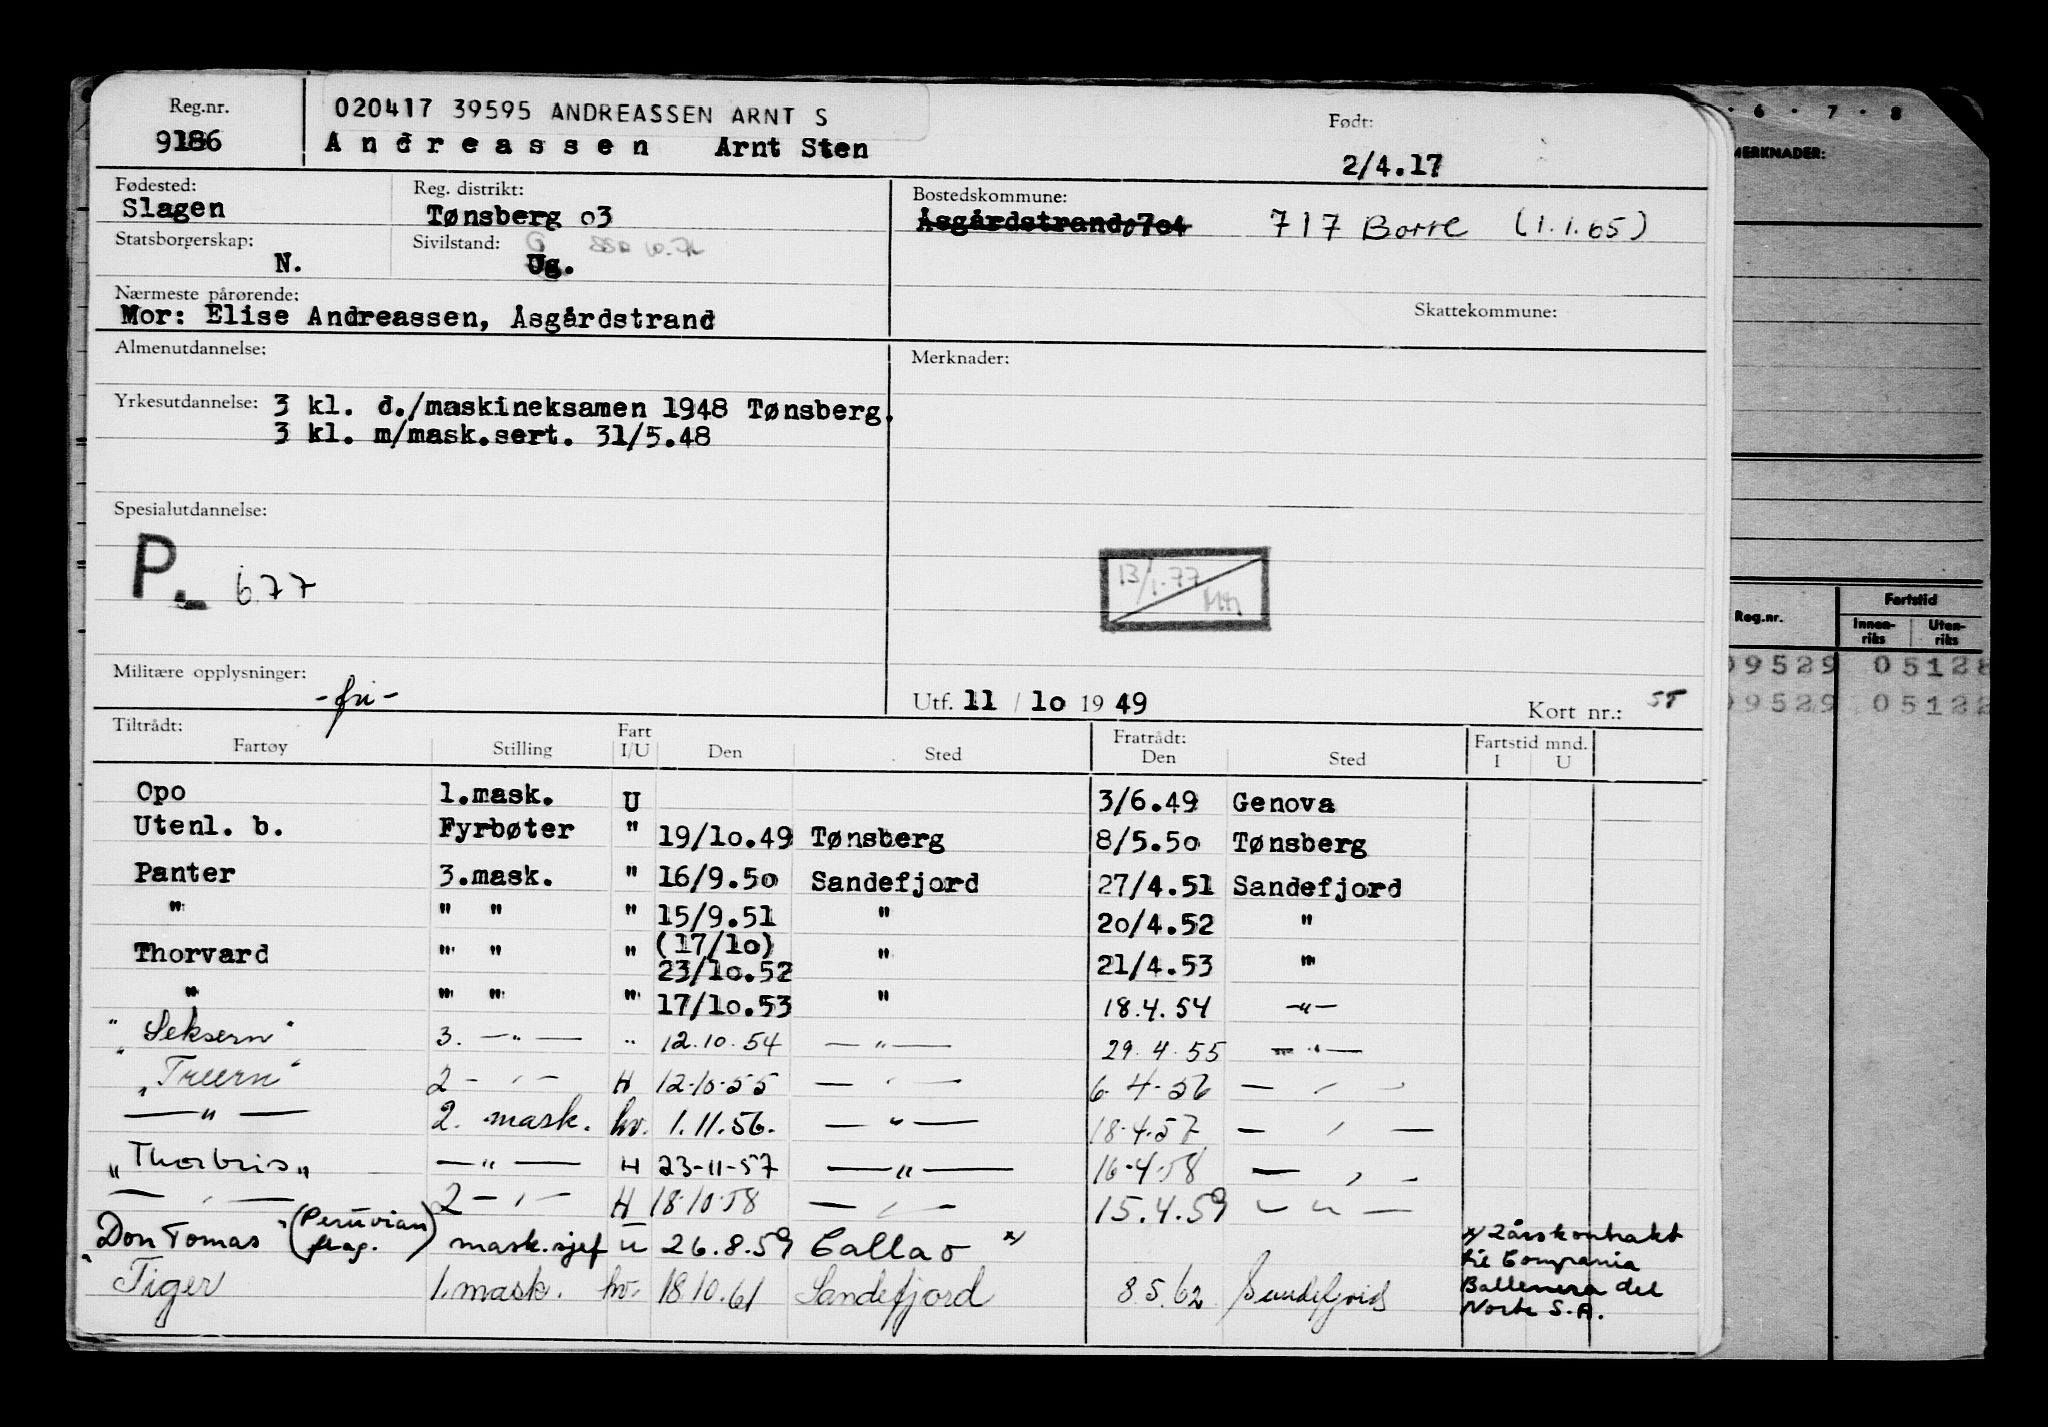 Reg.nr.
9186
020417 39595 ANDREASSEN ARNT S
Andreassen Arnt Sten
Født:
2/4.17
Fødested:
Slagen
Reg. distrikt:
Tønsberg 03
Bostedskommune:
Åsgårdstrand 0704 717 Borre (1.1.65)
Statsborgerskap:
N.
Sivilstand: G
Ug.
Nærmeste pårørende:
Mor: Elise Andreassen, Åsgårdstrand
Skattekommune:
Almenutdannelse:
Merknader:
Yrkesutdannelse: 3 kl. d./maskineksamen 1948 Tønsberg.
3 kl. m/mask.sert. 31/5.48
Spesialutdannelse:
P. 677
13/1.77
Militære opplysninger:
-fri-
Utf. 11 / 10 19 49
Kort nr.:
Tiltrådt: Fratrådt:
Fartøy Stilling Fart I/U Den Sted Den Sted Fartstid mnd. I U
Opo 1.mask. U 3/6.49 Genova
Utenl. b. Fyrbøter " 19/10.49 Tønsberg 8/5.50 Tønsberg
Panter 3.mask. " 16/9.50 Sandefjord 27/4.51 Sandefjord
" " " " 15/9.51 " 20/4.52 "
Thorvard " " " (17/10) 23/10.52 " 21/4.53 "
" " " " 17/10.53 " 18.4.54 —"—
"Seksern" 3. —"— " 12.10.54 —"— 29.4.55 —"—
"Treern" 2 —"— H 12-10-55 —"— 6-4-56 —"—
—"— 2. mask. hv. 1.11.56. —"— 18-4-57 —"—
"Thorbris" —"— H 23-11-57 —"— 16-4-58 —"—
—"— 2 —"— H 18-10-58 —"— 15.4.59 —"—
"Don Tomas" (Peruvian flag.) mask.sjef U 26.8.59 Callao x) x) 2årskontrakt
Tiger 1.mask. hv. 18.10.61 Sandefjord 8.5.62 Sandefjord
til Compania
Ballenera del
Norte S.A.
6 · 7 · 8
MERKNADER:
Reg.nr.
Fartstid
Innen-riks Uten-riks
09529 05128
09529 05122